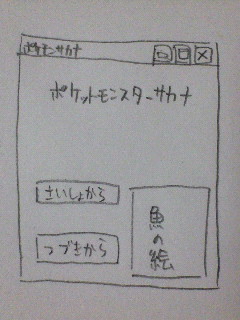 ポケモンサカナ
ポケットモンスターサカナ
さいしょから
つづきから
魚の絵